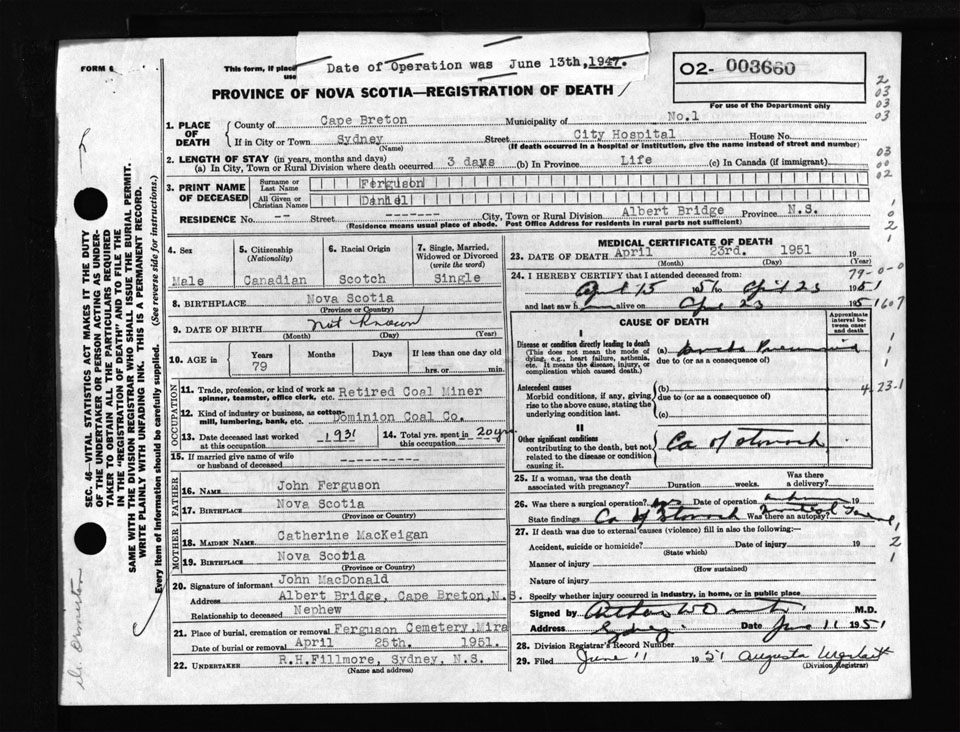 FORM 6
This form, if place
use
Date of Operation was June 13th, 1947.
PROVINCE OF NOVA SCOTIA—REGISTRATION OF DEATH
02- 003660
For use of the Department only
1. PLACE OF DEATH
County of Cape Breton Municipality of No.1
If in City or Town Sydney Street City Hospital House No.
(Name) (If death occurred in a hospital or institution, give the name instead of street and number)
2. LENGTH OF STAY (in years, months and days)
(a) In City, Town or Rural Division where death occurred 3 days (b) In Province Life (c) In Canada (if immigrant)
3. PRINT NAME OF DECEASED
Surname or Last Name Ferguson
All Given or Christian Names Daniel
RESIDENCE No. -- Street City, Town or Rural Division Albert Bridge Province N.S.
(Residence means usual place of abode. Post Office Address for residents in rural parts not sufficient)
4. Sex Male
5. Citizenship (Nationality) Canadian
6. Racial Origin Scotch
7. Single, Married, Widowed or Divorced (write the word) Single
8. BIRTHPLACE Nova Scotia
(Province or Country)
9. DATE OF BIRTH Not Known
(Month) (Day) (Year)
10. AGE in Years Months Days If less than one day old
79 hrs. or min.
OCCUPATION
11. Trade, profession, or kind of work as spinner, teamster, office clerk, etc. Retired Coal Miner
12. Kind of industry or business, as cotton-mill, lumbering, bank, etc. Dominion Coal Co.
13. Date deceased last worked at this occupation 1931
14. Total yrs. spent in this occupation 20 yrs
15. If married give name of wife or husband of deceased ---------
FATHER
16. NAME John Ferguson
17. BIRTHPLACE Nova Scotia
(Province or Country)
MOTHER
18. MAIDEN NAME Catherine MacKeigan
19. BIRTHPLACE Nova Scotia
(Province or Country)
20. Signature of informant John MacDonald
Address Albert Bridge, Cape Breton, N.S.
Relationship to deceased Nephew
21. Place of burial, cremation or removal Ferguson Cemetery, Mira
Date of burial or removal April 25th. 1951.
22. UNDERTAKER R.H.Fillmore, Sydney, N.S.
(Name and Address)
MEDICAL CERTIFICATE OF DEATH
23. DATE OF DEATH April 23rd. 1951 19
(Month) (Day) (Year)
79-0-0
24. I HEREBY CERTIFY that I attended deceased from:
April 15 1951 to April 23 1951
and last saw h alive on April 23 1951
607
CAUSE OF DEATH
Approximate interval between onset and death
I
Disease or condition directly leading to death (a) Pneumonia
(This does not mean the mode of dying, e.g., heart failure, asthenia, etc. It means the disease, injury, or complication which caused death.)
due to (or as a consequence of)
Antecedent causes (b)
Morbid conditions, if any, giving rise to the above cause, stating the underlying condition last.
due to (or as a consequence of)
(c)
4-23-1
II
Other significant conditions contributing to the death, but not related to the disease or condition causing it.
Ca of Stomach
25. If a woman, was the death associated with pregnancy? Duration weeks. Was there a delivery?
26. Was there a surgical operation? yes Date of operation 19
State findings Ca of Stomach Was there an autopsy?
27. If death was due to external causes (violence) fill in also the following:—
Accident, suicide or homicide? Date of injury 19
(State which)
Manner of injury
(How sustained)
Nature of injury
Specify whether injury occurred in industry, in home, or in public place
Signed by M.D.
Address Sydney. Date June 11 1951
28. Division Registrar's Record Number
29. Filed June 11 1951 Augusta Urquhart
(Division Registrar)
SEC. 46—VITAL STATISTICS ACT MAKES IT THE DUTY
OF THE UNDERTAKER OR PERSON ACTING AS UNDER-
TAKER TO OBTAIN ALL THE PARTICULARS REQUIRED
IN THE "REGISTRATION OF DEATH" AND TO FILE THE
SAME WITH THE DIVISION REGISTRAR WHO SHALL ISSUE THE BURIAL PERMIT.
WRITE PLAINLY WITH UNFADING INK. THIS IS A PERMANENT RECORD.
Every item of Information should be carefully supplied. (See reverse side for instructions.)